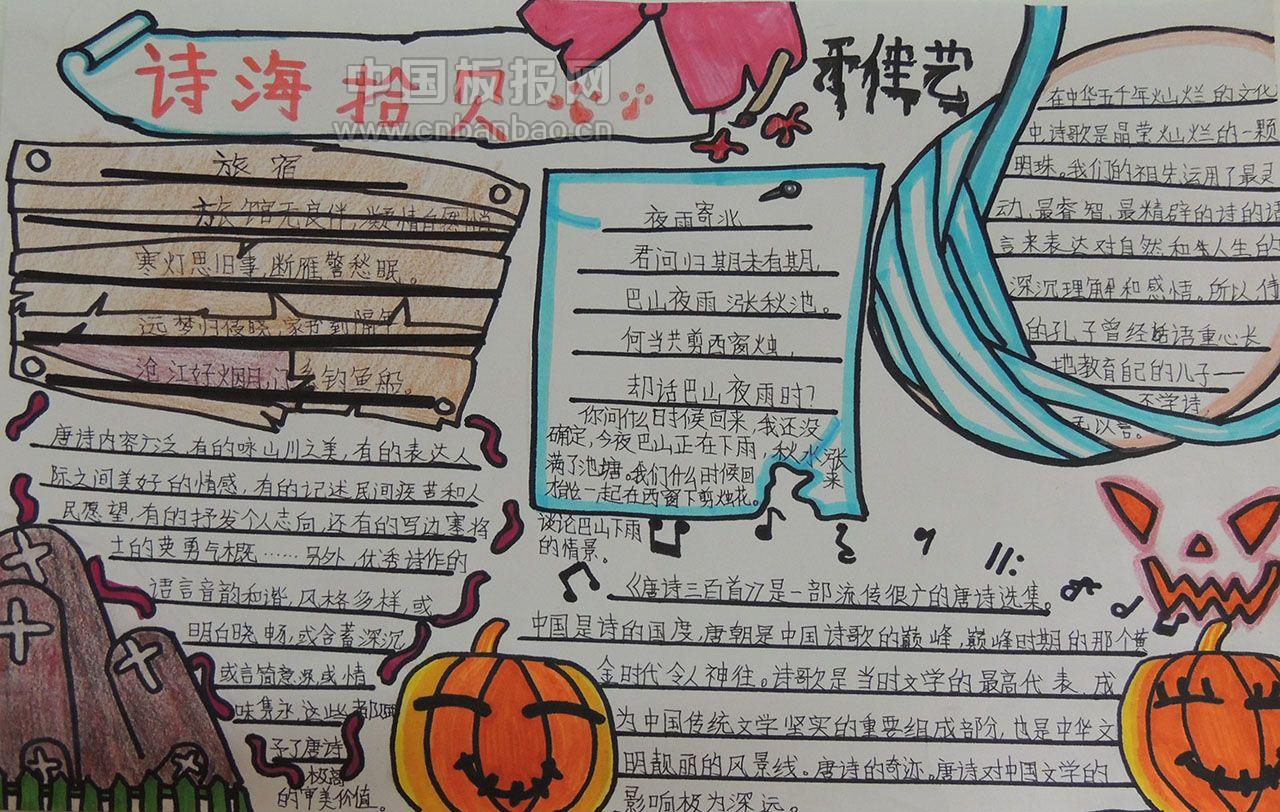 诗海拾贝
中国板报网
www.cnbanbao.cn
旅宿
旅馆无良伴,凝情自悄
寒灯思旧事,断雁警愁眠。
远梦归侵晓,家书到隔年
沧江好烟月,钓鱼船。
夜雨寄北
君问归期未有期,
巴山夜雨涨秋池。
何当共剪西窗烛,
却话巴山夜雨时?
你问什么日时候回来,我还没
确定,今夜巴山正在下雨,秋水涨
满了池塘。我们什么时候回来
才能一起在西窗下剪烛花。
谈论巴山下雨
的情景。
在中华五千年灿烂的文化
中诗歌是晶莹灿烂的一颗
明珠。我们的祖先运用了最灵
动,最睿智,最精辟的诗的语
言来表达对自然和人生的
深沉理解和感悟。所以伟
的孔子曾经语重心长
地教育自己的儿子一
不学诗,
无以言。
唐诗内容广泛,有的咏山川之美,有的表达人
际之间美好的情感,有的记述民间疾苦和人
民愿望,有的抒发个人志向,还有的写边塞将
士的英勇气概……另外,优秀诗作的
语言音韵和谐,风格多样,或
明白晓畅,或含蓄深沉
或言简意深或情
味隽永这些都赋
予了唐诗
极高
的审美价值。
《唐诗三百首》是一部流传很广的唐诗选集。
中国是诗的国度,唐朝是中国诗歌的巅峰,巅峰时期的那个黄
金时代令人神往。诗歌是当时文学的最高代表,成
为中国传统文学坚实的重要组成部分,也是中华文
明靓丽的风景线。唐诗的奇迹。唐诗对中国文学的
影响极为深远。